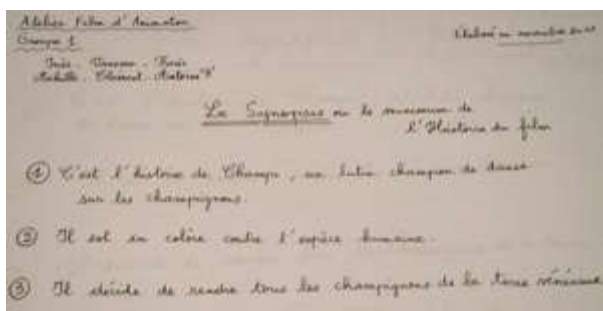 Atelier Film d'Animation
Groupe 1
Élaboré en novembre
Inès - - 
Achille - Clément - Antoine
Le Synopsis ou le de
l'Histoire du film
① C'est l'histoire de Champi, un lutin champion de danse
sur les champignons.
② Il est en colère contre l'espèce humaine.
③ Il décide de rendre tous les champignons de la terre vénéneux